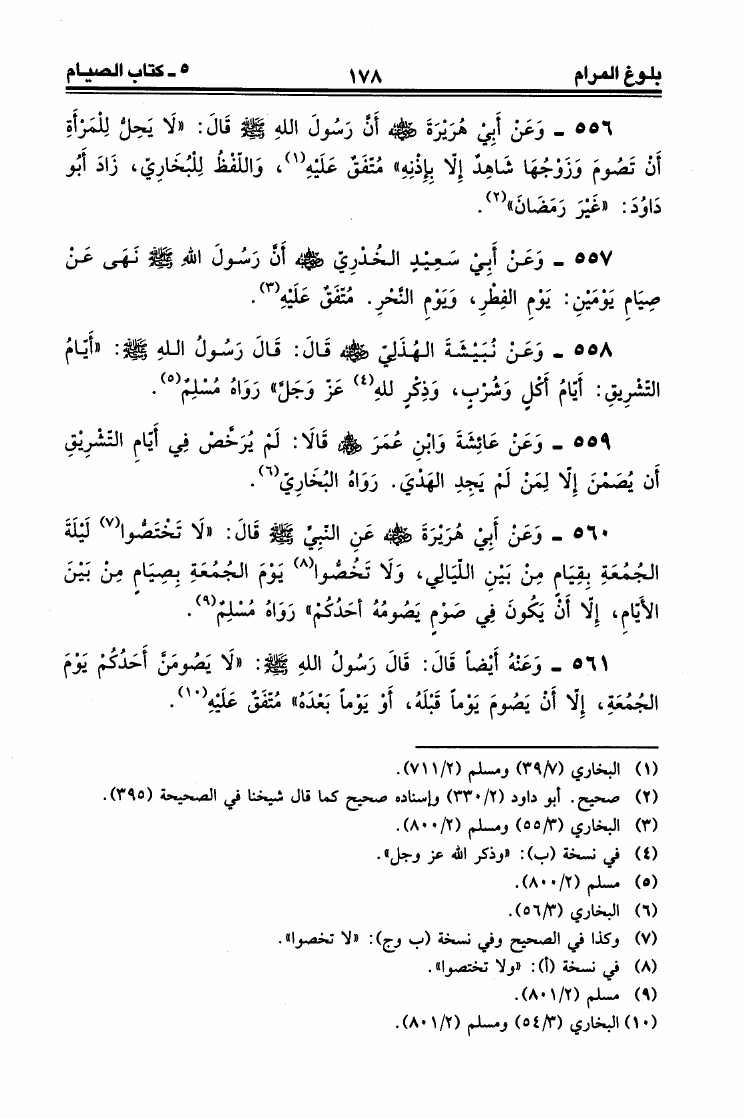 بلوغ المرام ١٧٨ ٥ - كتاب الصيام
٥٥٦ - وَعَنْ أَبِيْ هُرَيْرَةَ ﵁ أَنَّ رَسُولَ اللهِ ﷺ قَالَ: «لَا يَحِلُّ لِلْمَرْأَةِ
أَنْ تَصُومَ وَزَوْجُهَا شَاهِدٌ إِلَّا بِإِذْنِهِ» مُتَّفَقٌ عَلَيْهِ(١)، وَاللَّفْظُ لِلْبُخَارِيِّ، زَادَ أَبُو
دَاوُدَ: «غَيْرَ رَمَضَانَ»(٢).
٥٥٧ - وَعَنْ أَبِيْ سَعِيْدٍ الخُدْرِيِّ ﵁ أَنَّ رَسُولَ اللهِ ﷺ نَهَى عَنْ
صِيَامِ يَوْمَيْنِ: يَوْمِ الفِطْرِ، وَيَوْمِ النَّحْرِ. مُتَّفَقٌ عَلَيْهِ(٣).
٥٥٨ - وَعَنْ نُبَيْشَةَ الهُذَلِيِّ ﵁ قَالَ: قَالَ رَسُولُ اللهِ ﷺ: «أَيَّامُ
التَّشْرِيقِ: أَيَّامُ أَكْلٍ وَشُرْبٍ، وَذِكْرٍ للهِ(٤) عَزَّ وَجَلَّ» رَوَاهُ مُسْلِمٌ(٥).
٥٥٩ - وَعَنْ عَائِشَةَ وَابْنِ عُمَرَ ﵃ قَالَا: لَمْ يُرَخَّصْ فِي أَيَّامِ التَّشْرِيقِ
أَن يُصَمْنَ إِلَّا لِمَنْ لَمْ يَجِدِ الهَدْيَ. رَوَاهُ البُخَارِيِّ(٦).
٥٦٠ - وَعَنْ أَبِيْ هُرَيْرَةَ ﵁ عَنِ النَّبِيِّ ﷺ قَالَ: «لَا تَخْتَصُّوا(٧) لَيْلَةَ
الجُمُعَةِ بِقِيَامٍ مِنْ بَيْنِ اللَّيَالِي، وَلَا تَخُصُّوا(٨) يَوْمَ الجُمُعَةِ بِصِيَامٍ مِنْ بَيْنَ
الأَيَّامِ، إِلَّا أَنْ يَكُونَ فِي صَوْمٍ يَصُومُهُ أَحَدُكُمْ» رَوَاهُ مُسْلِمٌ(٩).
٥٦١ - وَعَنْهُ أَيْضاً قَالَ: قَالَ رَسُولُ اللهِ ﷺ: «لَا يَصُومَنَّ أَحَدُكُمْ يَوْمَ
الجُمُعَةِ، إِلَّا أَنْ يَصُومَ يَوْماً قَبْلَهُ، أَوْ يَوْماً بَعْدَهُ» مُتَّفَقٌ عَلَيْهِ(١٠).
(١) البخاري (٣٩/٧) ومسلم (٧١١/٢).
(٢) صحيح. أبو داود (٣٣٠/٢) وإسناده صحيح كما قال شيخنا في الصحيحة (٣٩٥).
(٣) البخاري (٥٥/٣) ومسلم (٨٠٠/٢).
(٤) في نسخة (ب): «وذكر الله عز وجل».
(٥) مسلم (٨٠٠/٢).
(٦) البخاري (٥٦/٣).
(٧) وكذا في الصحيح وفي نسخة (ب وج): «لا تخصوا».
(٨) في نسخة (أ): «ولا تختصوا».
(٩) مسلم (٨٠١/٢).
(١٠) البخاري (٥٤/٣) ومسلم (٨٠١/٢).